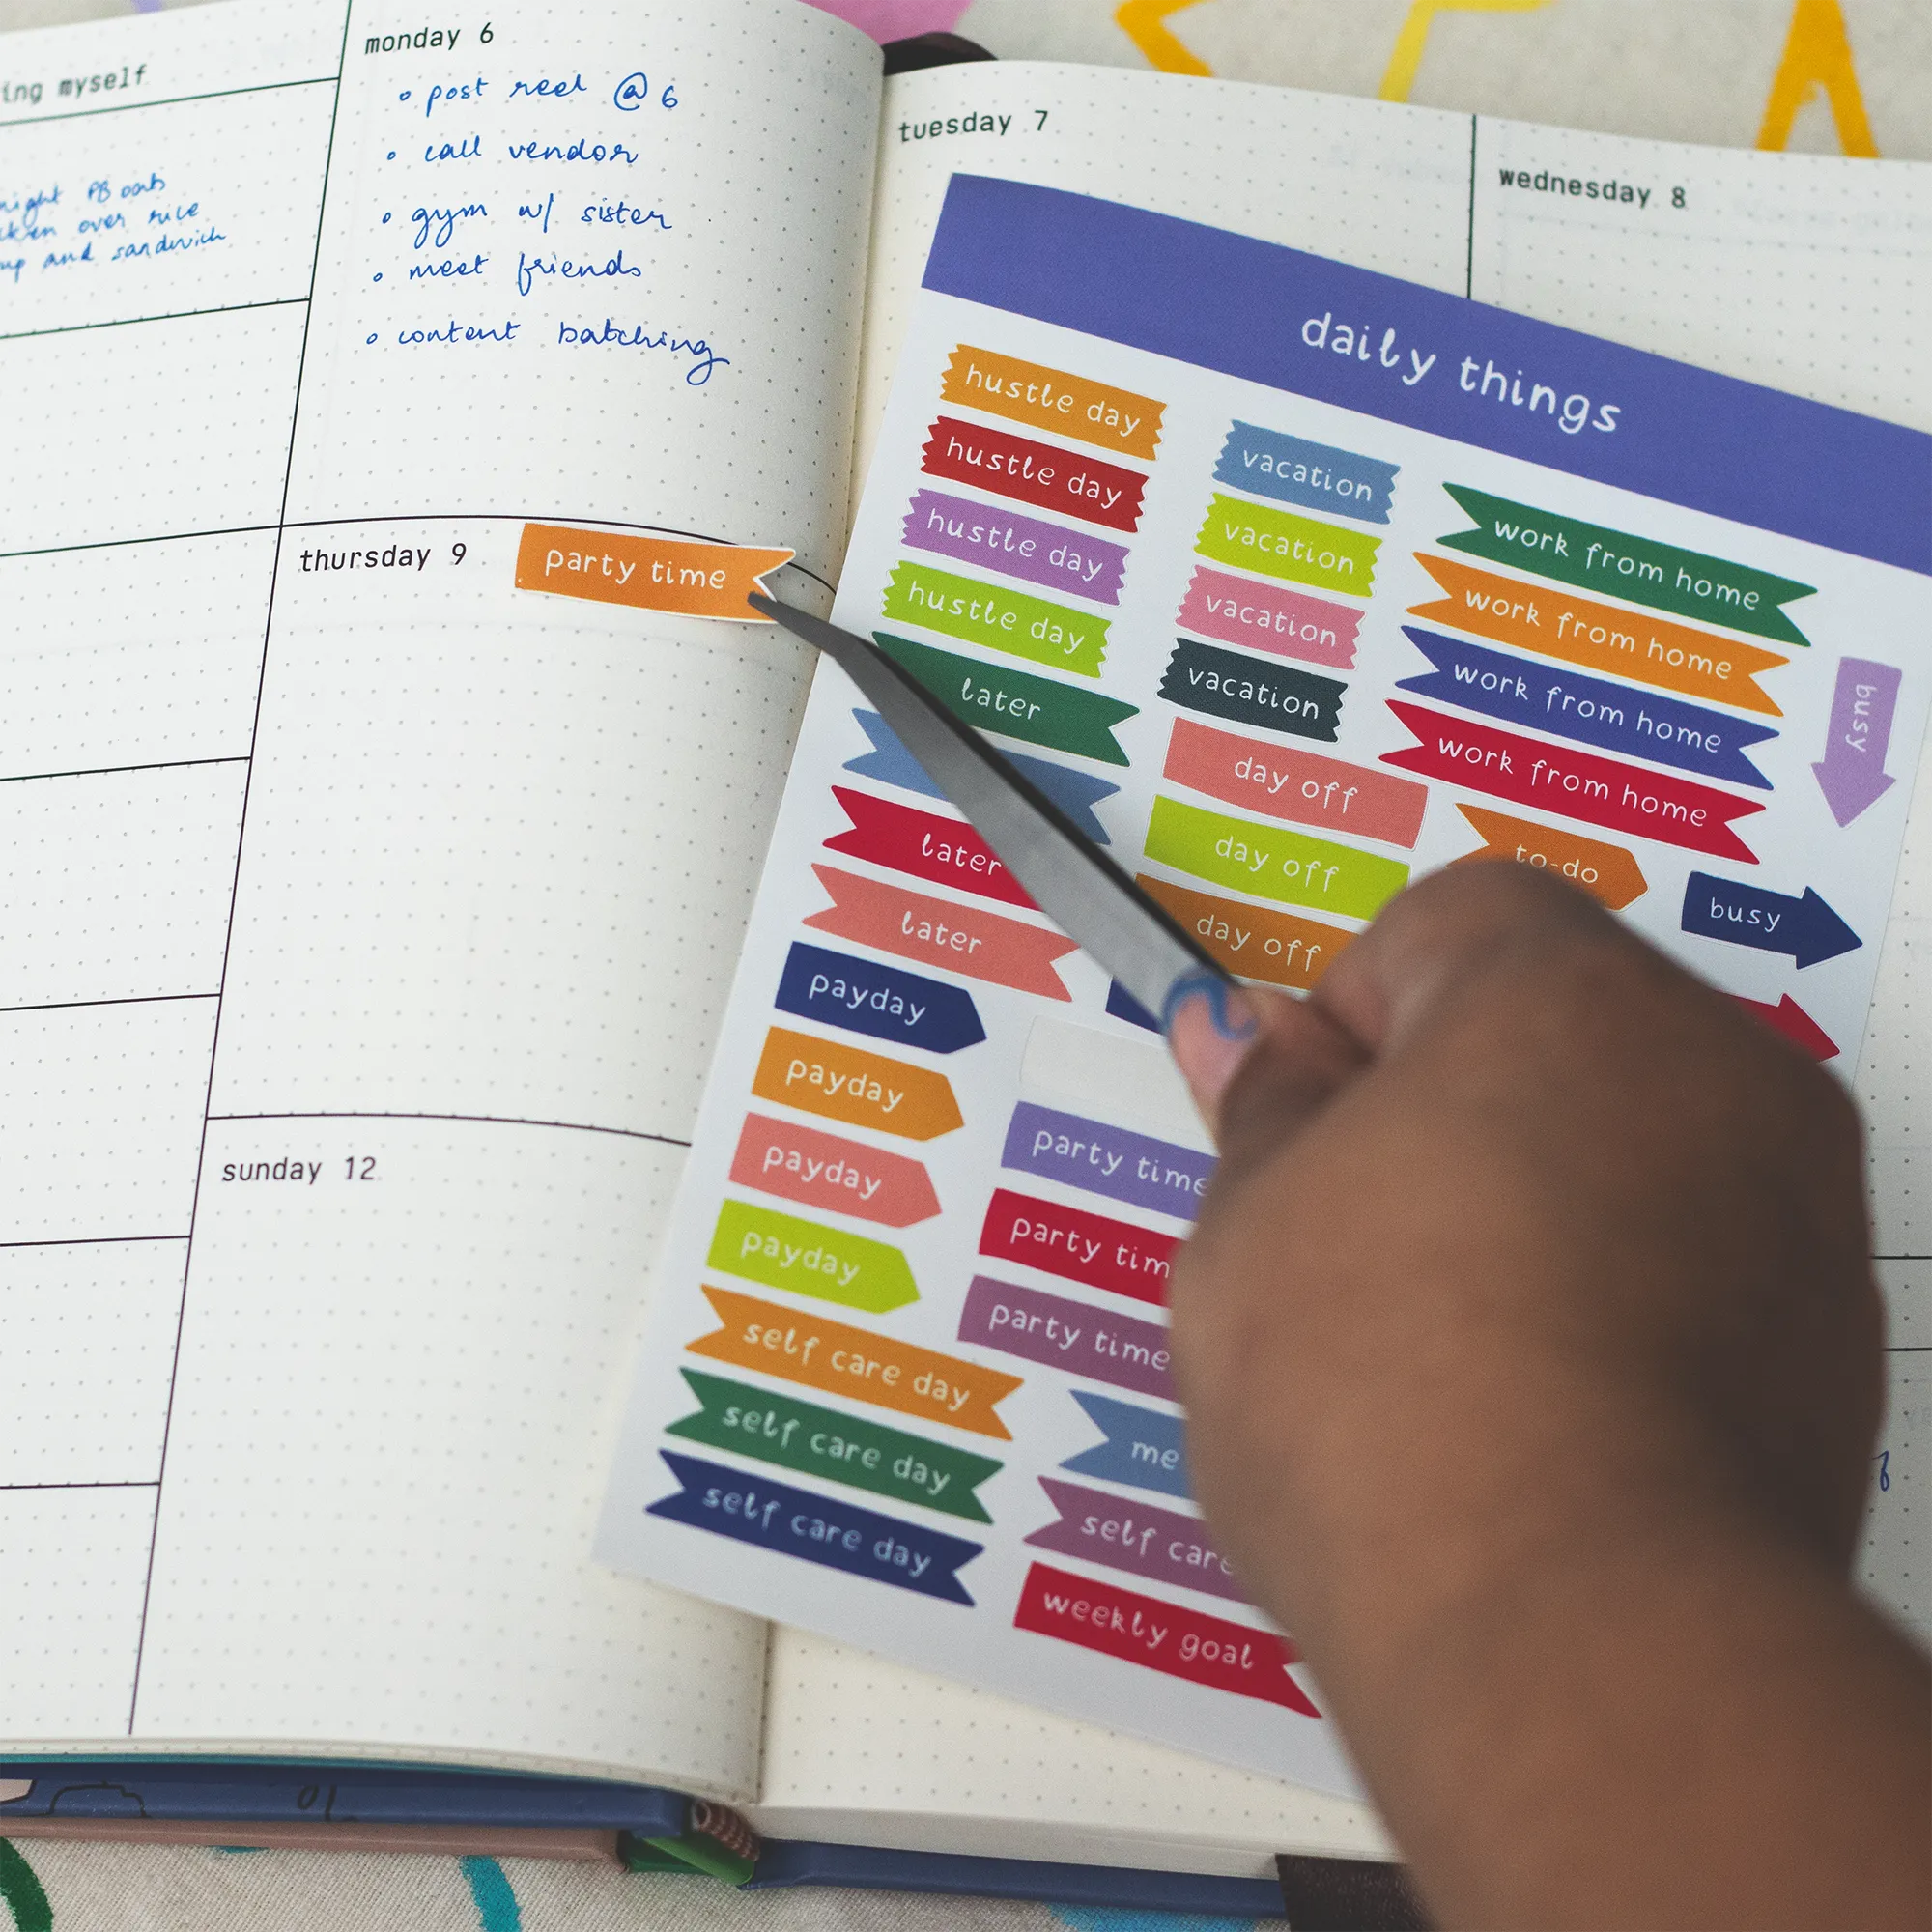 ing myself
night PB oats
ken over rice
up and sandwich
monday 6
post reel @ 6
call vendor
gym w/ sister
meet friends
content batching
thursday 9
party time
sunday 12
tuesday 7
wednesday 8
daily things
hustle day
hustle day
hustle day
hustle day
later
later
later
payday
payday
payday
payday
self care day
self care day
self care day
vacation
vacation
vacation
vacation
day off
day off
day off
party time
party tim
party time
me
self care
weekly goal
work from home
work from home
work from home
work from home
to-do
busy
busy